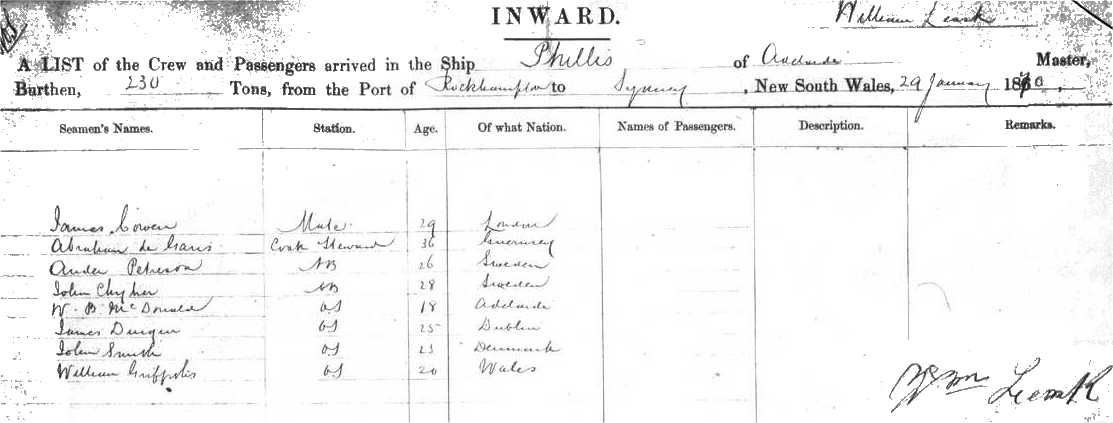 INWARD.
William Leask
A LIST of the Crew and Passengers arrived in the Ship Phillis of Adelaide Master,
Burthen, 230 Tons, from the Port of Rockhampton to Sydney, New South Wales, 29 January 1870.
Seamen's Names. Station. Age. Of what Nation. Names of Passengers. Description. Remarks.
James Cowen Mate 29 London
Abraham de Garis Cook Steward 36 Guernsey
Ander Peterson AB 26 Sweden
John AB 28 Sweden
W. B. McDonald OS 18 Adelaide
James OS 25 Dublin
John Smith OS 23 Denmark
William OS 20 Wales
Wm Leask